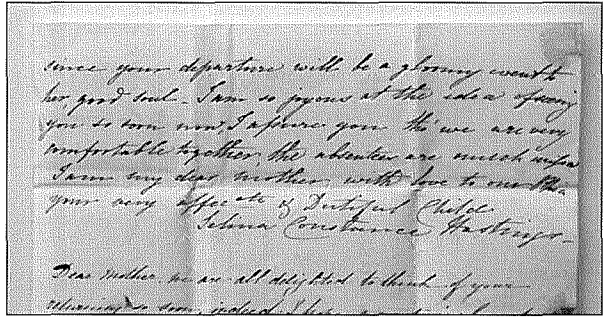 since your departure will be a gloomy event to
her good soul - I am so joyous at the idea of seeing
you so soon now, I assure you tho' we are very
comfortable together, the absentees are much
I am my dear mother with love to
your very affecate & Dutiful Child
Selina Constance Hastings -
Dear Mother we are all delighted to think of your
returning so soon, indeed I